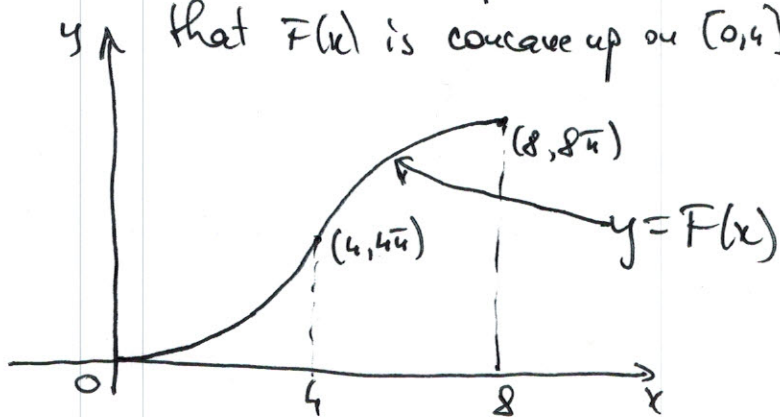 y that F(x) is concave up on [0,4]
(8, 8π)
y = F(x)
(4, 4π)
0 4 8 x